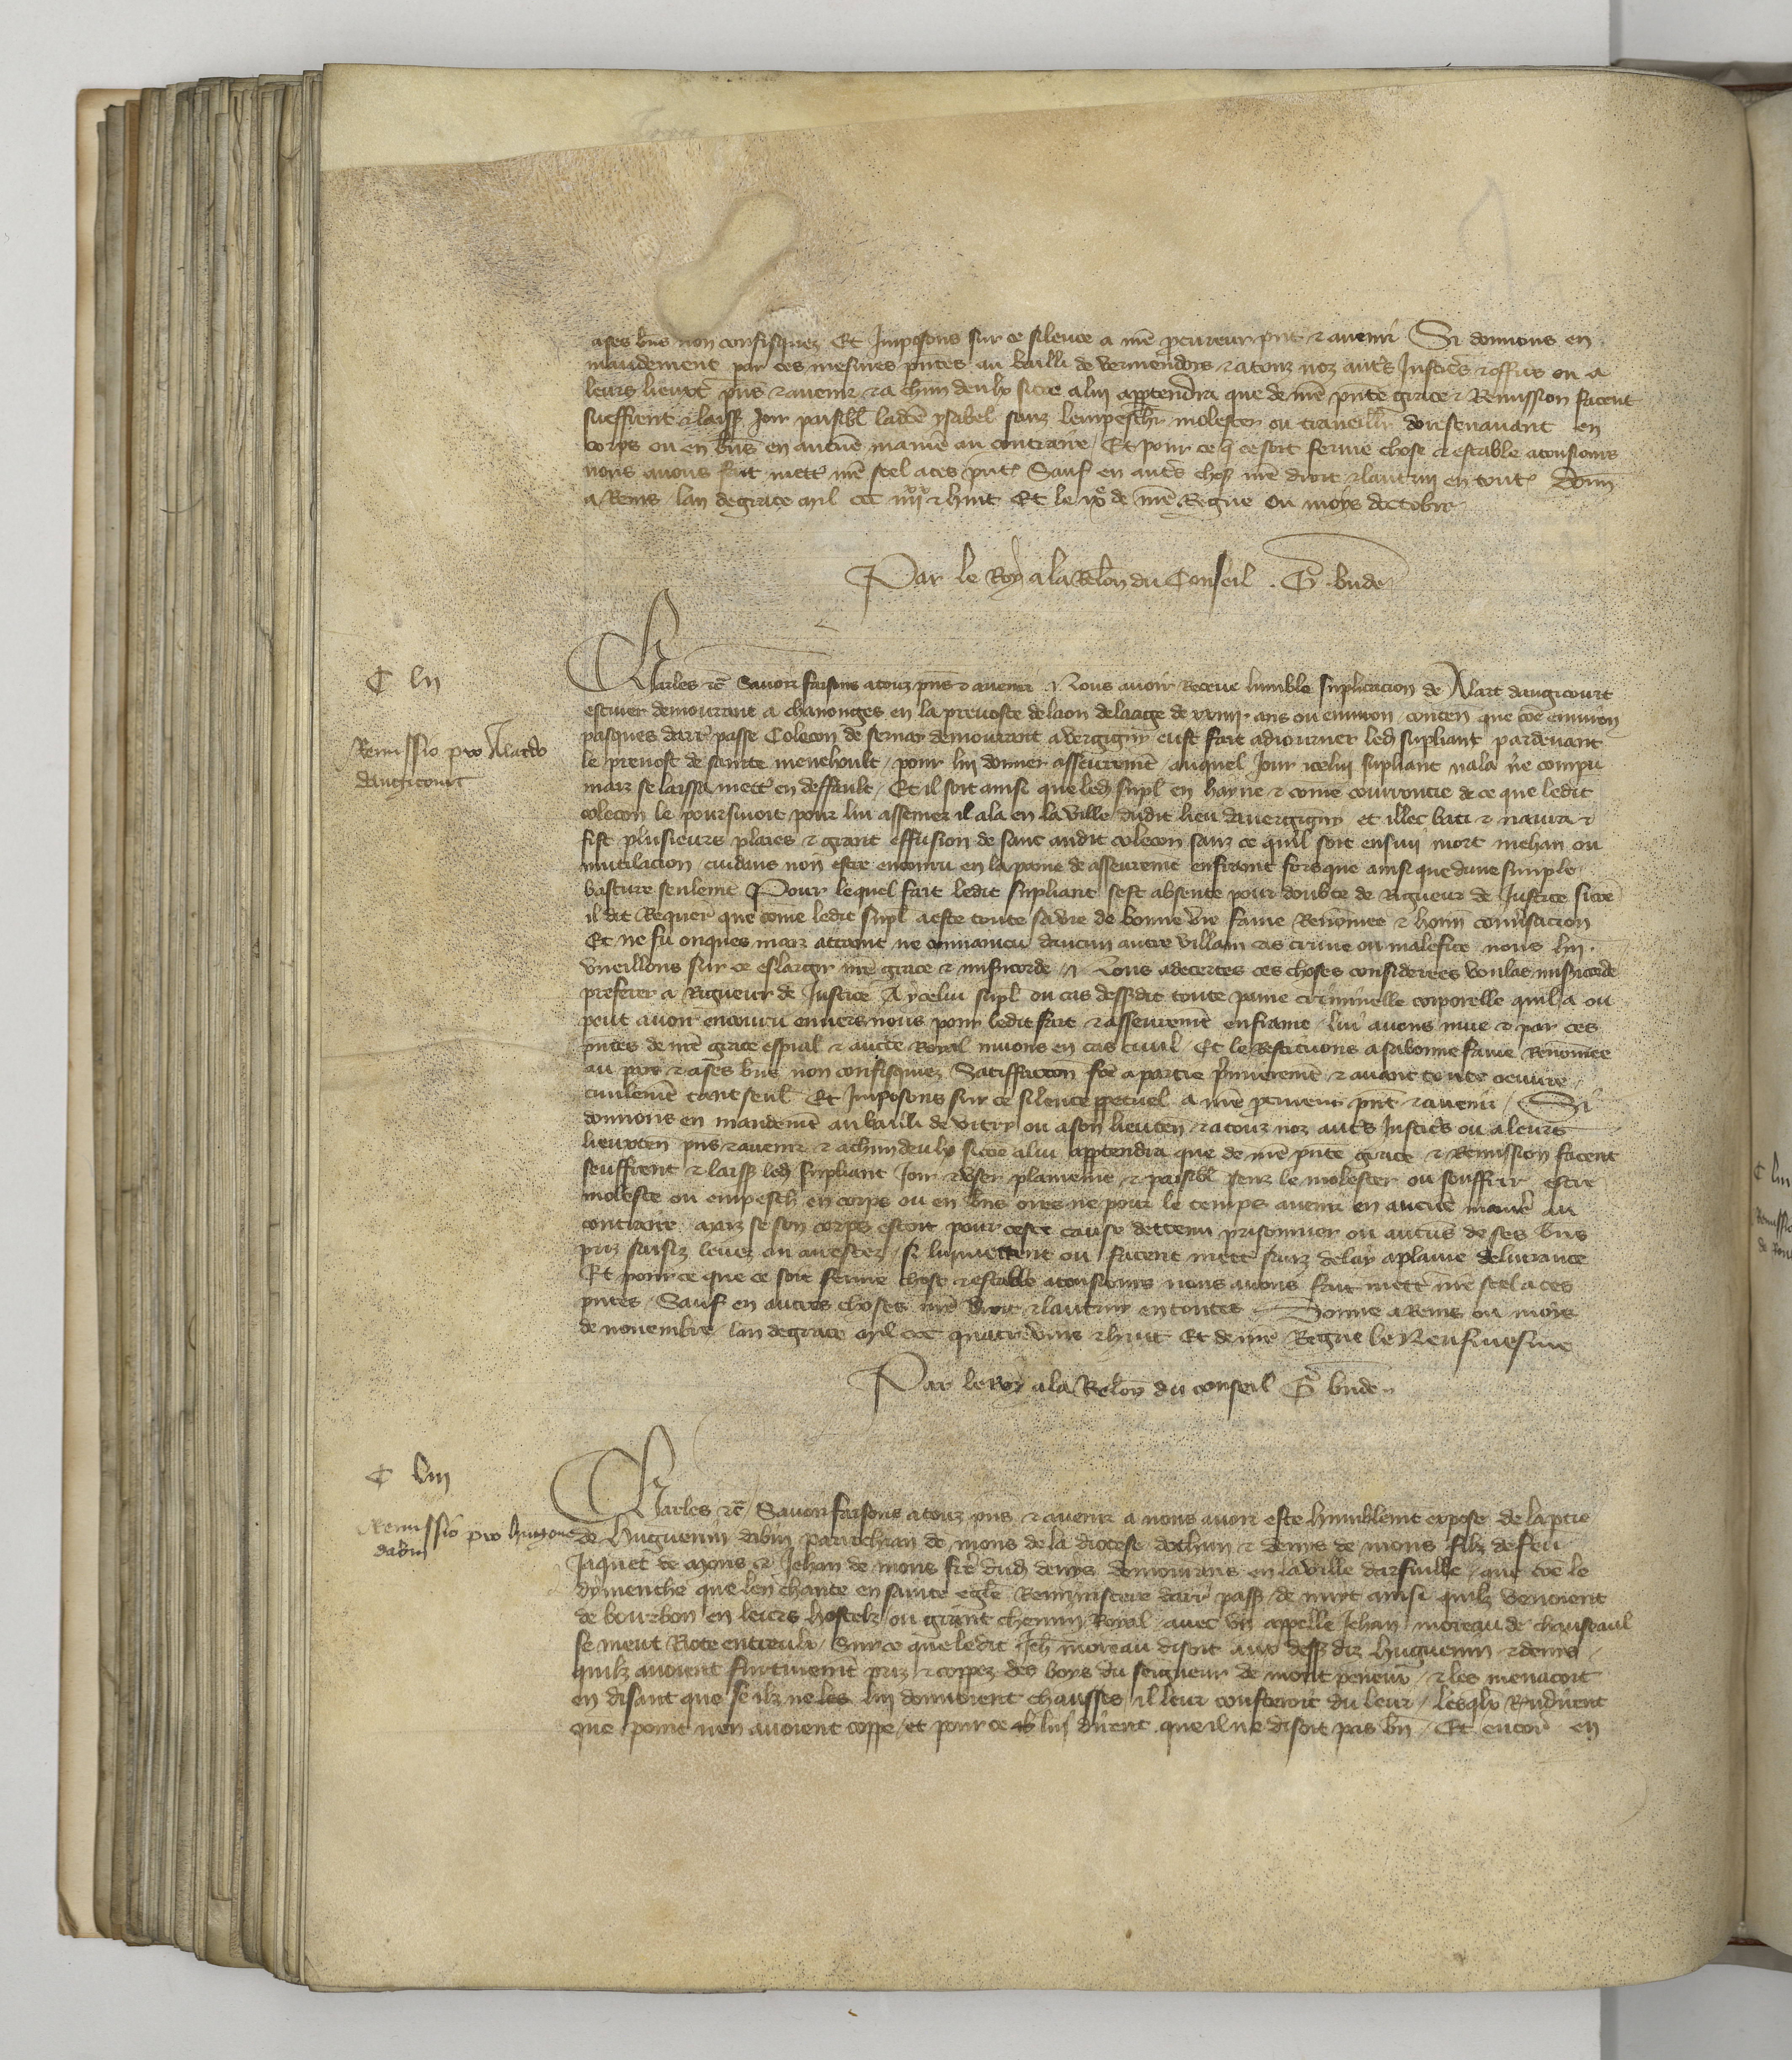 a ses bns non confisquez Et Imposons sur ce silence a nre procureur pnt & avenir Si donnons en
mandement par ces mesmes pntes au bailli de vermendois & a touz noz autrs Justicrs & offics ou a
leurs lieuxt pns & avenir & a chun deulx sicoe a lui apptendra que de nre pnte grace & Remission facent
sueffrent & laiss Joir paisibl ladce ysabel sanz lempeschr molester ou travaillr doresenavant en
corps ou en bns en aucune maniere au contraire Et pour ce q ce soit ferme chose & estable a tousiours
nous avons fait mettr nre seel a ces pntes Sauf en autrs choses nre droit & lautruy en toutes Donn
a Reins lan de grace mil ccc iiiixx & huit Et le ixe de nre Regne ou moys doctobre
Par le Roy a la Relon du Conseil . G. bude
C lii
Remissio pro Alardo
daugicourt
Charles &c Savoir faisons a touz pns & avenir Nous avoir Receue lumble suplicacion de Alart daugicourt
escuier demourant a chanonges en la prevoste de laon de laage de xxiiii ans ou environ conten que coe environ
pasques darr passe Colecon de sernay demourant a vergigny eust fait adiourner led supliant pardevant
le prevost de sainte menehoult pour lui donner asseurement auquel Jour icelui supliant nala ne compu
maiz se laissa mettr en deffault Et il soit ainsi que led supl en hayne & come courroucie de ce que ledit
colecon le poursuivoit pour lui assener il ala en la ville dudit lieu davergigny et illec bati & navra &
fist plusieurs plaies & grant effusion de sanc audit colecon sanz ce quil soit ensuy mort mehain ou
mutilacion cuidans non estre encouru en la paine de asseurement enfraint fors que ainsi que dune simple
bature seulemt Pour lequel fait ledit supliant sest absente pour doubte de Rigueur de Justice sicoe
il dit Requer que come ledit supl a este toute sa vie de bonne vie fame Renommee & honn conversacion
Et ne fu onques maiz attaint ne convaincu daucun autre villain cas crime ou malefice nous lui
vueillons sur ce eslargir nre grace & misericorde Nous adecertes ces choses considerees voulas misericorde
preferer a Rigueur de Justice A ycelui supl ou cas dessdit toute paine criminelle corporelle quil a ou
peut avoir encouru envers nous pour ledit fait & asseurement enfraint lui avons mue & par ces
pntes de nre grace espial & aucte Royal muons en cas civil Et le Restituons a sa bonne fame Renommee
au pais & a ses bns non confisquez Satisfaccion fce a partie premierement & avant toute oeuvre
civilement tant seul Et Imposons sur ce silence ppetuel a nre procureur pnt & avenir Si
donnons en mandement au bailli de vitry ou a son lieuten & a touz noz autrs Justicrs ou a leurs
lieuxten pns & avenir & a chun deulx sicoe a lui apptendra que de nre pnte grace & Remission facent
seuffrent & laiss led supliant Joir & user plainement & paisibl senz le molester ou souffrir estre
moleste ou empesch en corps ou en bns ores ne pour le temps avenir en aucune maniere au
contraire maiz se son corps estoit pour ceste cause detenu prisonnier ou aucuns de ses bns
priz saisiz levez ou arrestez si lui mettent ou facent mett sanz delay a plaine delivrance
Et pour ce que ce soit ferme chose & estable a tousiours nous avons fait mettr nre seel a ces
pntes Sauf en autres choses nre droit & lautruy en toutes Donne a Reins ou mois
de novembre lan de grace mil ccc quatrevins & huit Et de nre Regne le Neufvesme
Par le Roy a la Relon du conseil G bude
C liii
Remissio pro hugone
dabin
Charles &c Savoir faisons a touz pns & avenir a nous avoir este humblement expose de la ptie
de huguenin dabin parrochian de mons de la diocese dothun & denis de mons filz de feu
Jaquet de mons & Jehan de mons frere dud denys demourans en la ville darfuille que coe le
dymenche que len chante en sainte egle Reminiscere darr passe de nuyt ainsi quilz venoient
de bourbon en leurs hostelz ou grant chemin Royal avec un appelle Jehan moreau de chauseaul
se meut Riote entreulx sur ce que ledit Jeh moreau disoit aux dess diz huguenin & denis
quilz avoient furtivement priz & coppez des boys du seigneur de mont peneux & les menacoit
en disant que se ilz ne les lui donnoient chausses il leur cousteroit du leur lesqlx Rndirent
que point nen avoient coppe et pour ce lui dirent que il ne disoit pas bn Et encor en